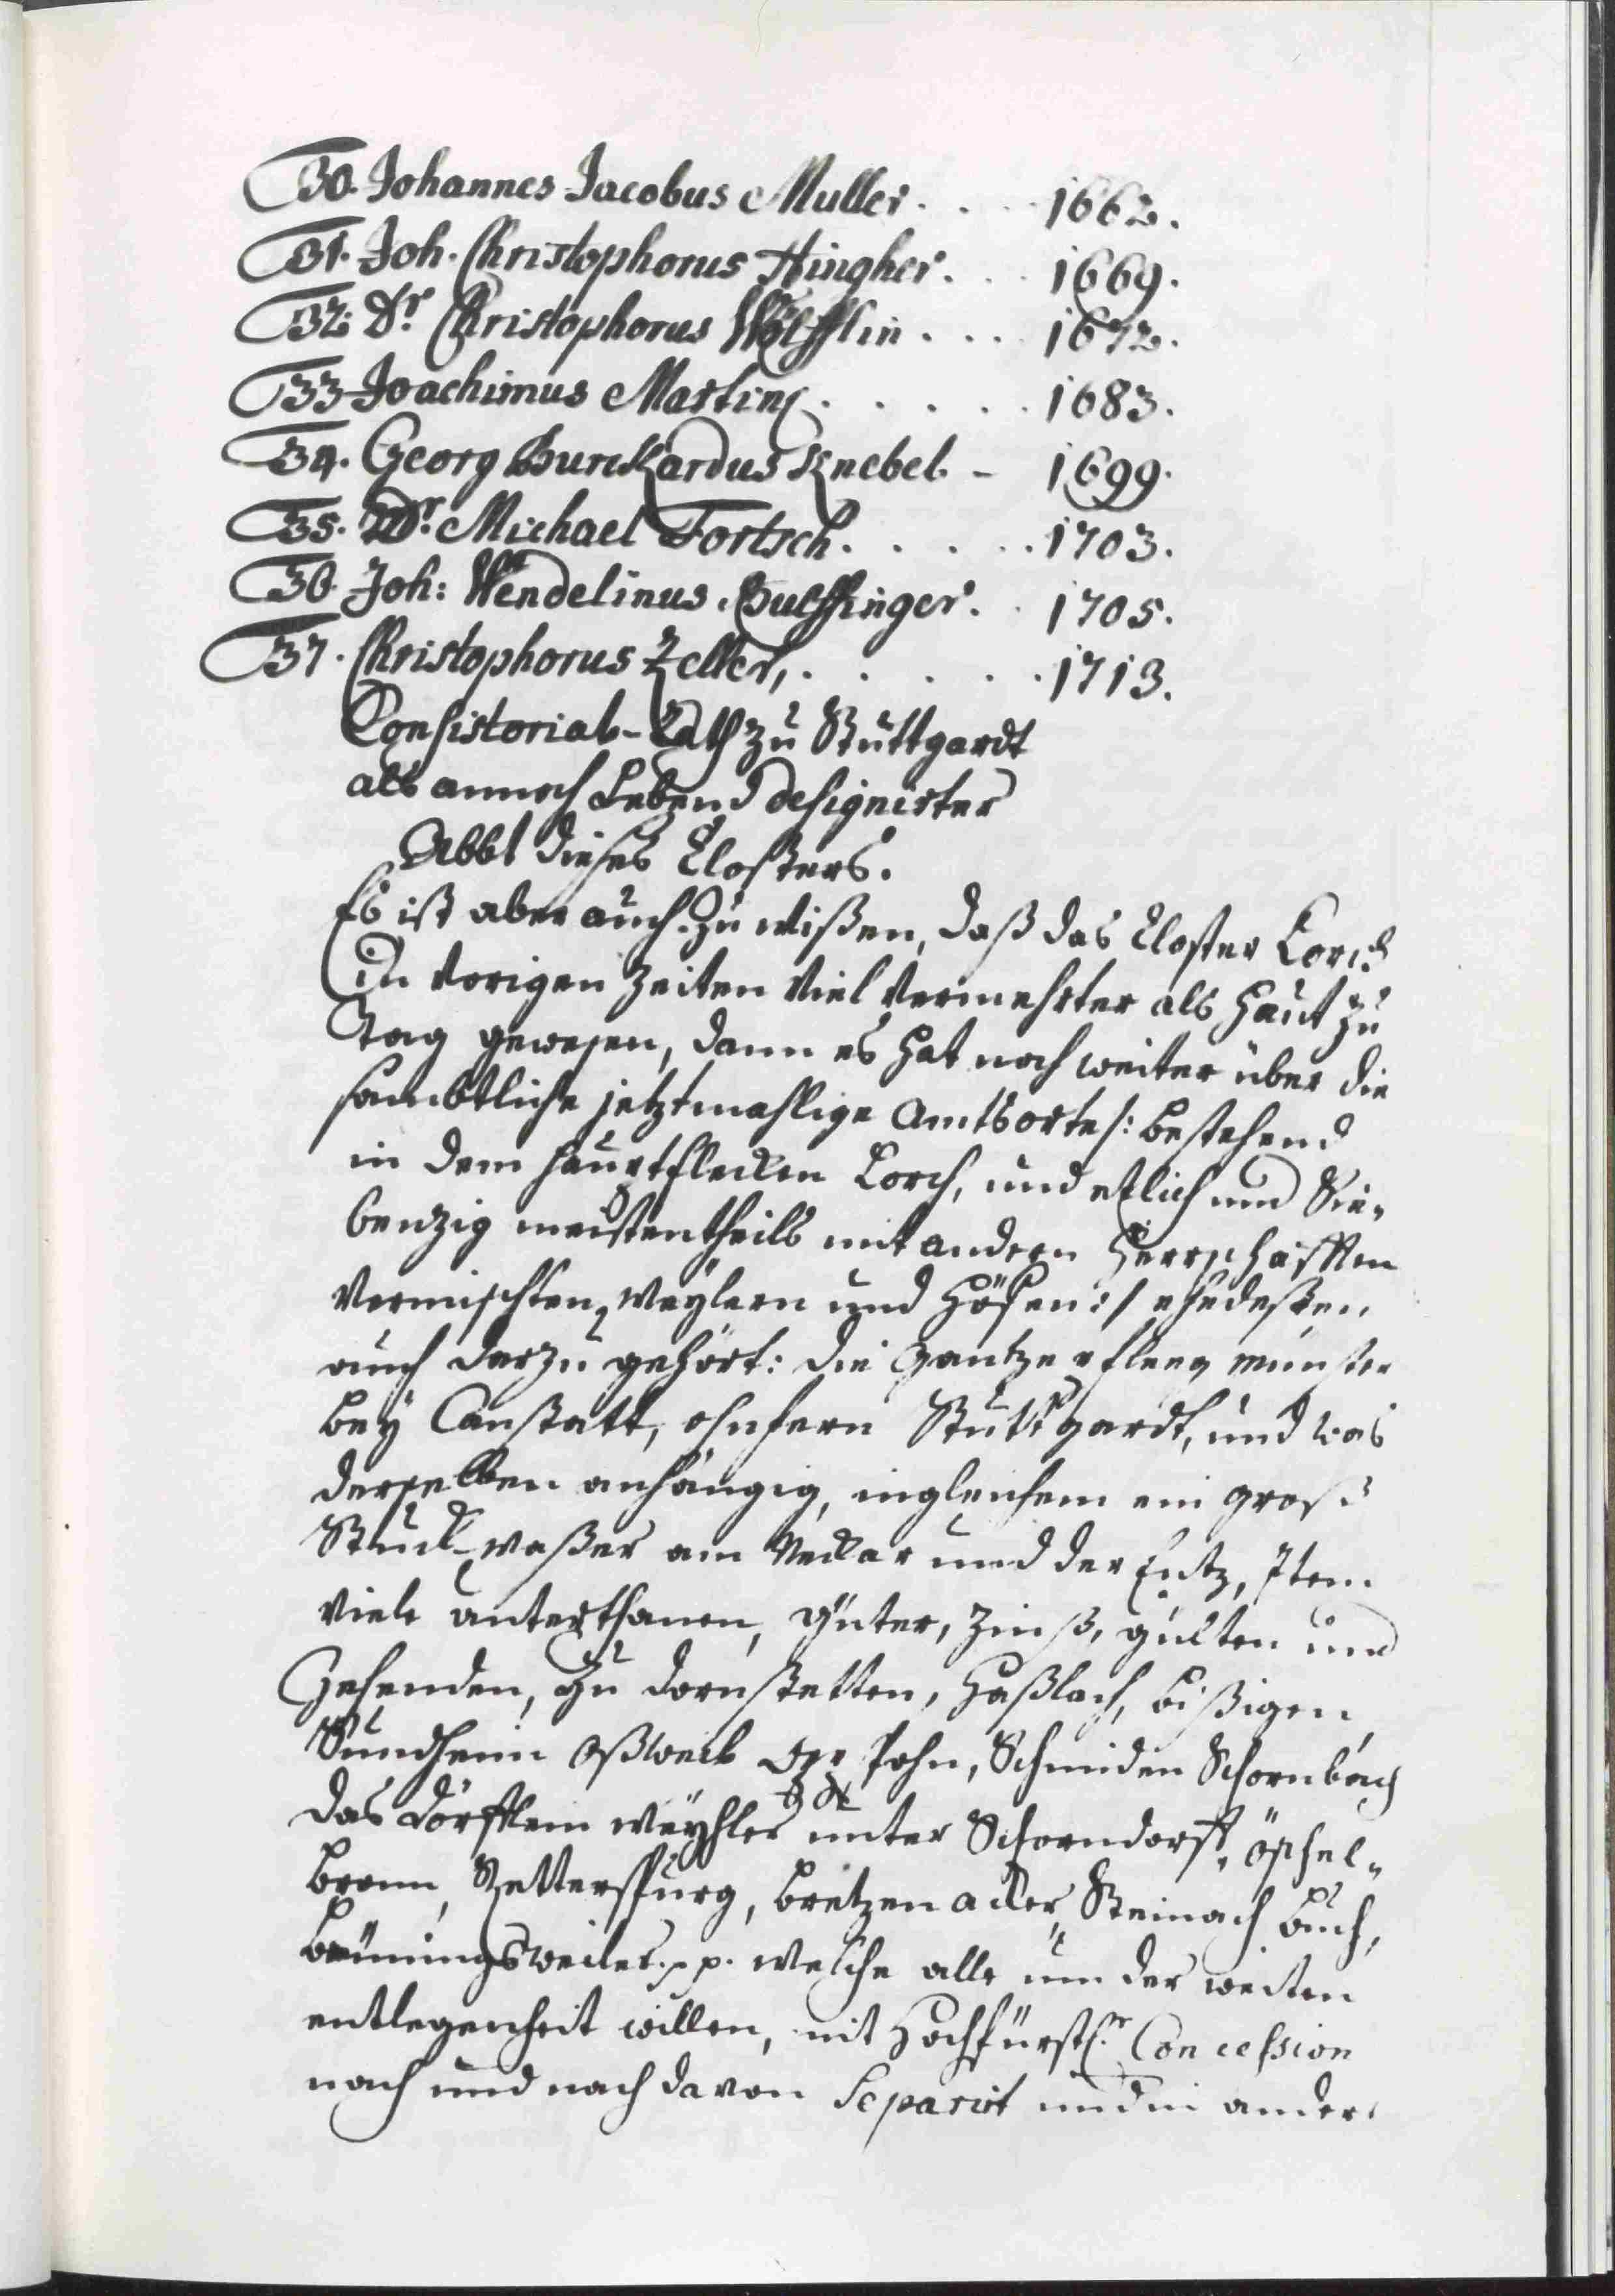 30. Johannes Jacobus Muller. . . . 1662.
31. Joh. Christophorus Hingher. . . 1669.
32. Dr. Christophorus Wölfflin . . . 1672.
33 Joachimus Martini . . . . . 1683.
34. Georg Burckardus Knebel - 1699.
35. Dr. Michael Fortsch. . . . . 1703.
36. Joh: Wendelinus Bulffinger. . 1705.
37. Christophorus Zeller, . . . . . 1713.
Consistorial-Rath zu Stuttgardt
als annoch Lebend designirter
Abbt dieses Closters.
Es ist aber auch zu wißen, daß das Closter Lorch
in vorigen Zeiten viel vermehrter als Haut zu
Tag gewesen, dann es hat noch weiter über die
sambtliche jetztmahlige Amtsorte /: bestehend
in dem Hauptflecken Lorch, und etlich und Sie-
benzig meistentheils mit andern Herrschafften
vermischten, Weylern und Höfen :/ ehedeßen
auch darzu gehört: die Gantze Pfleeg Münster
bey Canstatt, ohnfern Stuttgardt, und was
derselben anhängig, ingleichem ein groß
Stuck-waßer am Neckar und der Entz, Item
viele unterthanen, Güter, Zinß, gülten und
Zehenden, zu Dornstetten, Haßlach, Bißigen,
Sundheim Oßweil Sohn, Schmiden Schornbach
das Dörfflein Weyhler unter Schorndorff, Öschel-
bronn, Retterspurg, Bretzenacker, Steinach Buch,
Bruningsweiler. pp. welche alle um der weiten
entlegenheit willen, mit Hochfürstl.r Concession
nach und nach davon Separirt und in ander